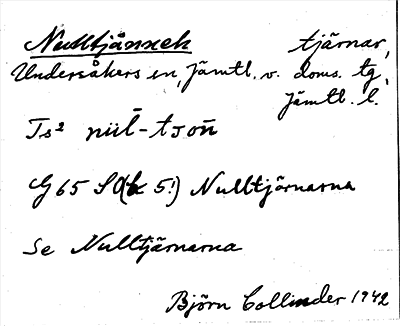 Nulltjänneh tjärnar,
Undersåkers sn, Jämtl. v. doms. tg,
Jämtl. l.
Ts²
G 65 SO (bl 5!) Nulltjärnarna
Se Nulltjärnarna
Björn Collinder 1942